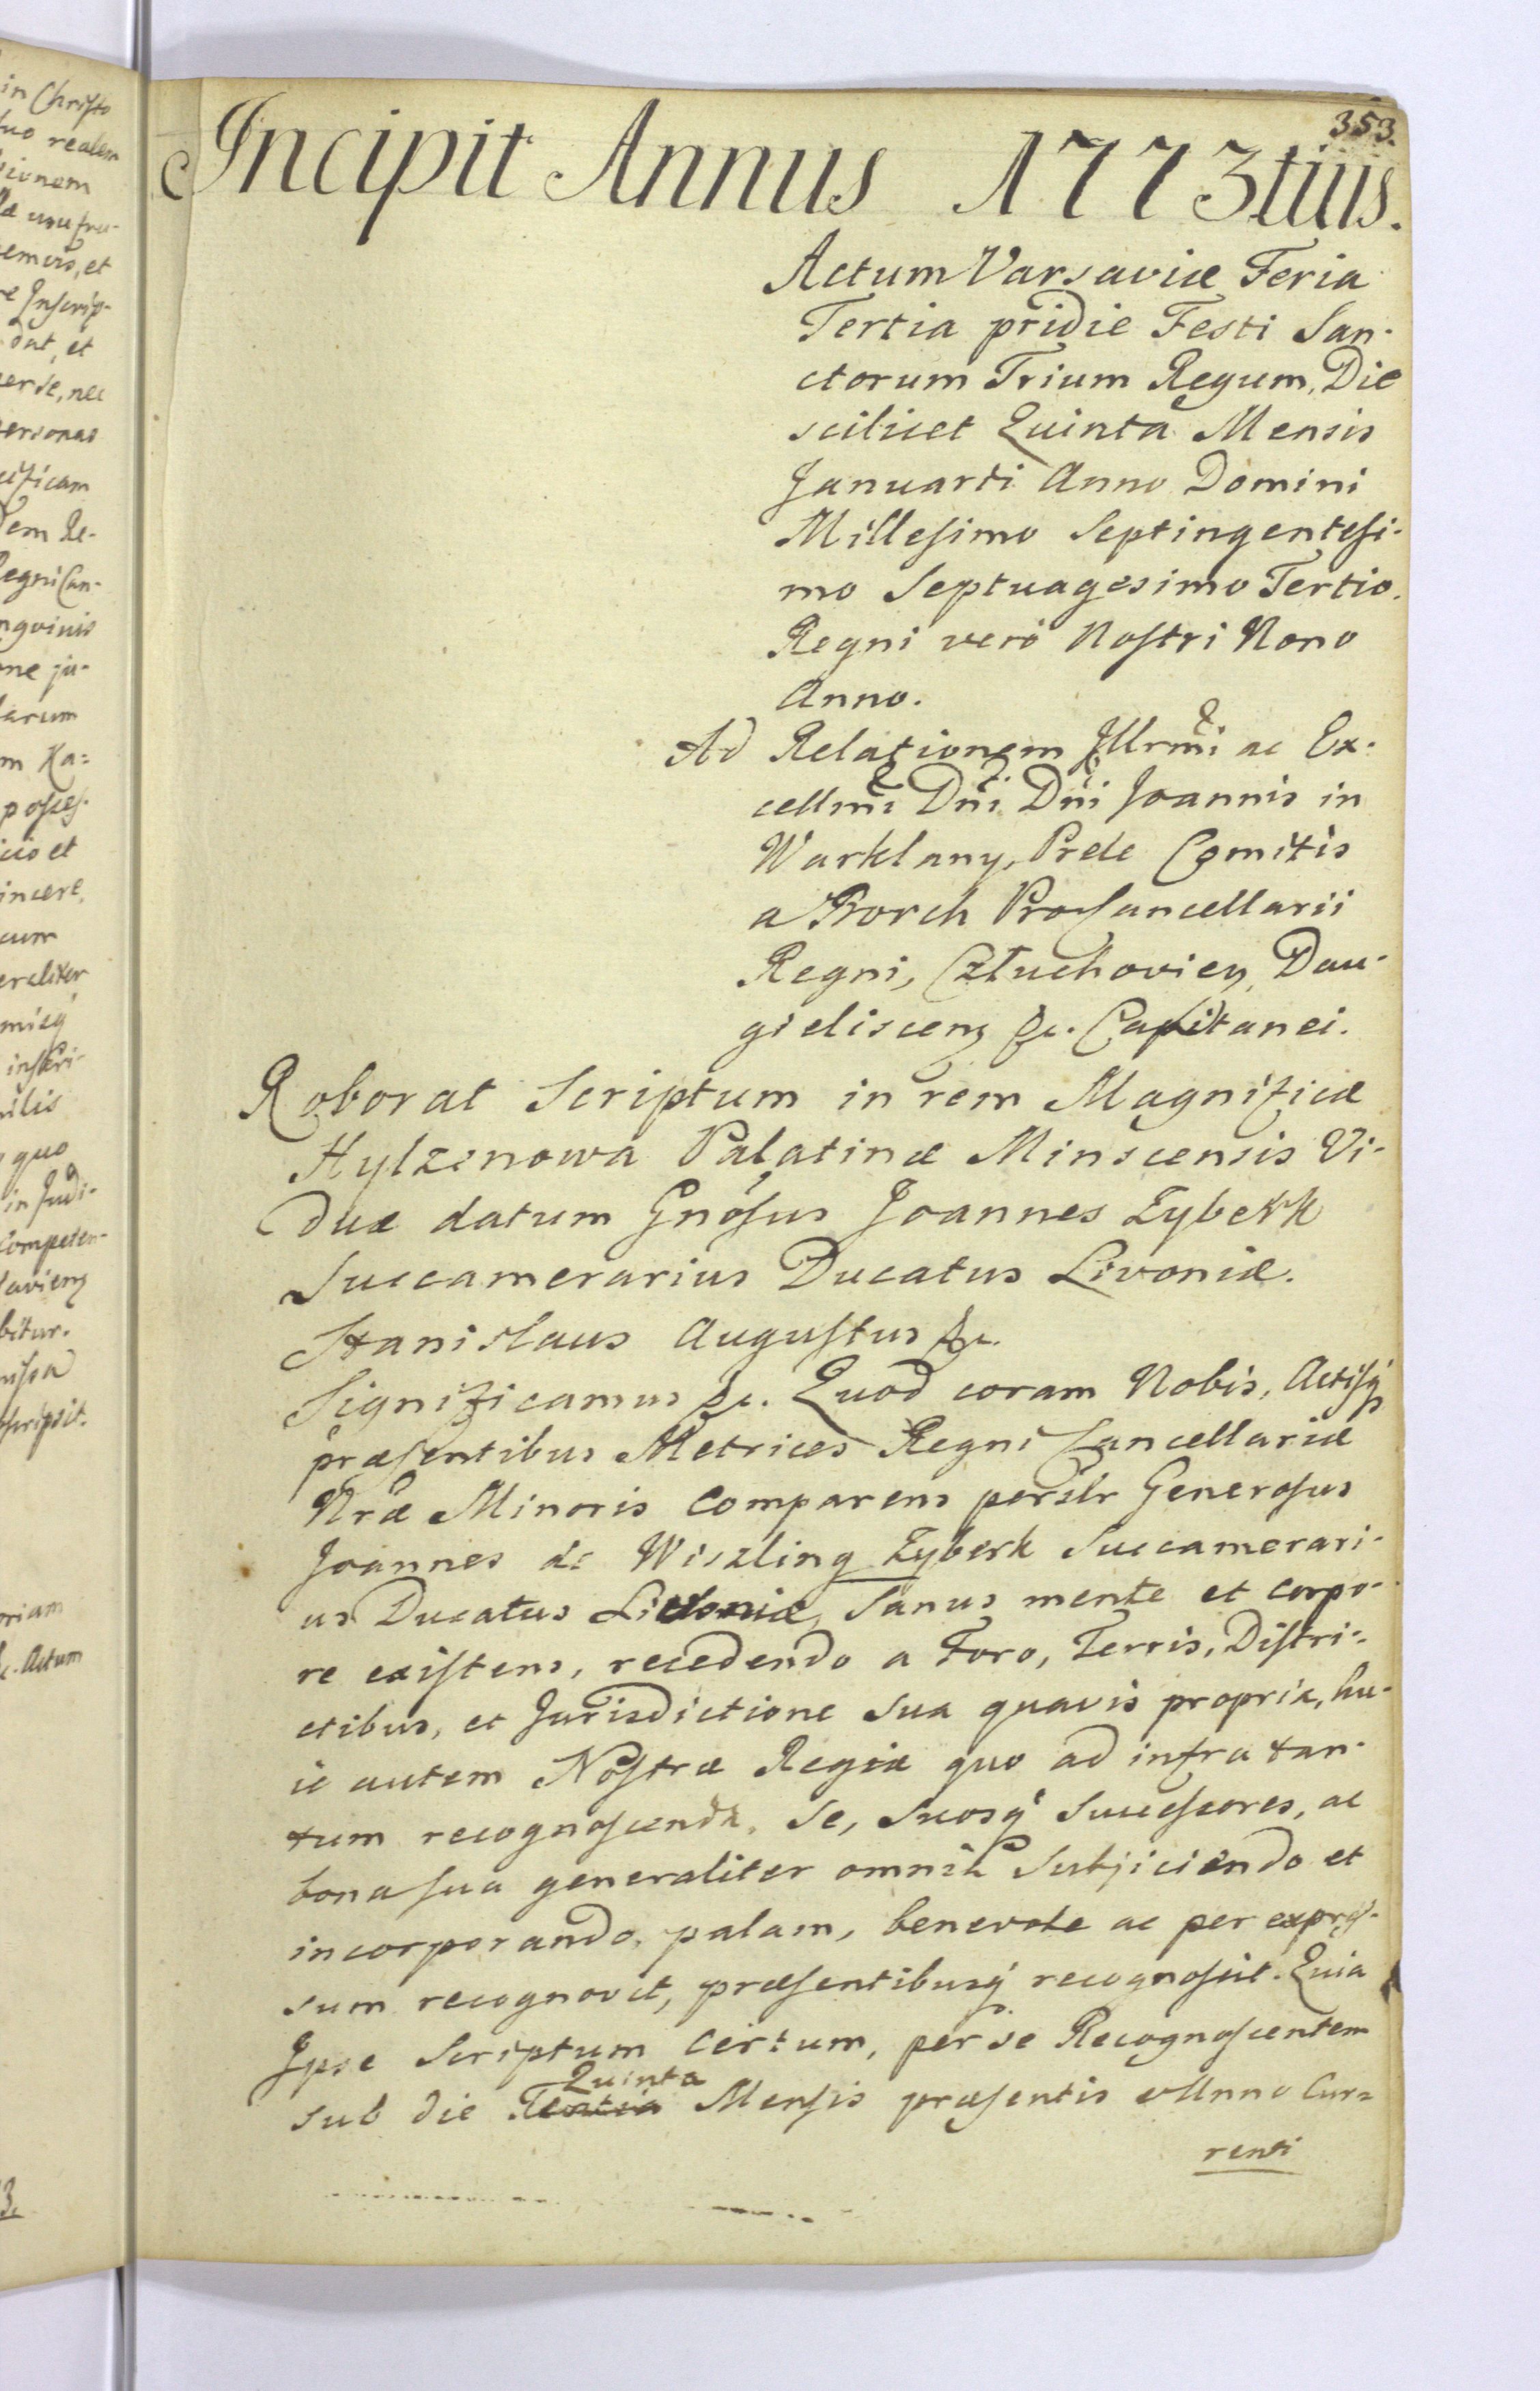 in Christo
suo realem
sionem
usu fru-
emvis, et
Inscrip-
dat, et
per se, nec
personas
cificam
dem Re-
Regni Can-
ngvinis
one ju-
larum
m Ka=
posses-
icio et
incere,
cum
eraliter
inscri-
quo
in Judi-
Competen-
bitur.
scripsit.
oriam
&c. Actum
3.
353.
Incipit Annus 1773tius.
Actum Varsaviæ Feria
Tertia pridie Festi San-
ctorum Trium Regum, Die
scilicet Quinta Mensis
Januarii Anno Domini
Millesimo Septingentesi-
mo Septuagesimo Tertio.
Regni verò Nostri Nono
Anno.
Ad Relationem Illrmi ac Ex-
cellmi Dni Dni Joannis in
Warklany, Prele Comitis
a Borch ProCancellarii
Regni, Człuchovien, Dau-
gieliscens &c. Capitanei.
Roborat Scriptum in rem Magnificæ
Hylzenowa Palatinæ Minscensis Vi-
duæ datum Gnosus Joannes Zyberk
Succamerarius Ducatus Livoniæ.
Stanislaus Augustus &c.
Significamus &c. Quod coram Nobis, Actisq
præsentibus Metrices Regni Cancellariæ
Nræ Minoris Comparens persLr Generosus
Joannes de Wiszling Zyberk Succamerari-
us Ducatus Livoniæ, Sanus mente et corpo-
re existens, recedendo a Foro, Terris, Distri-
ctibus, et Jurisdictione sua quavis propria, hu-
ic autem Nostræ Regiæ quo ad infra tan-
tum recognoscenda, se, suosq Successores, ac
bona sua generaliter omnia subjiciendo et
incorporando, palam, benevole ac per expres-
sum recognovit, præsentibusq recognoscit. Quia
Ipse Scriptum certum, per se Recognoscentem
sub die Tertia Quinta Mensis præsentis Anno Cur=
renti